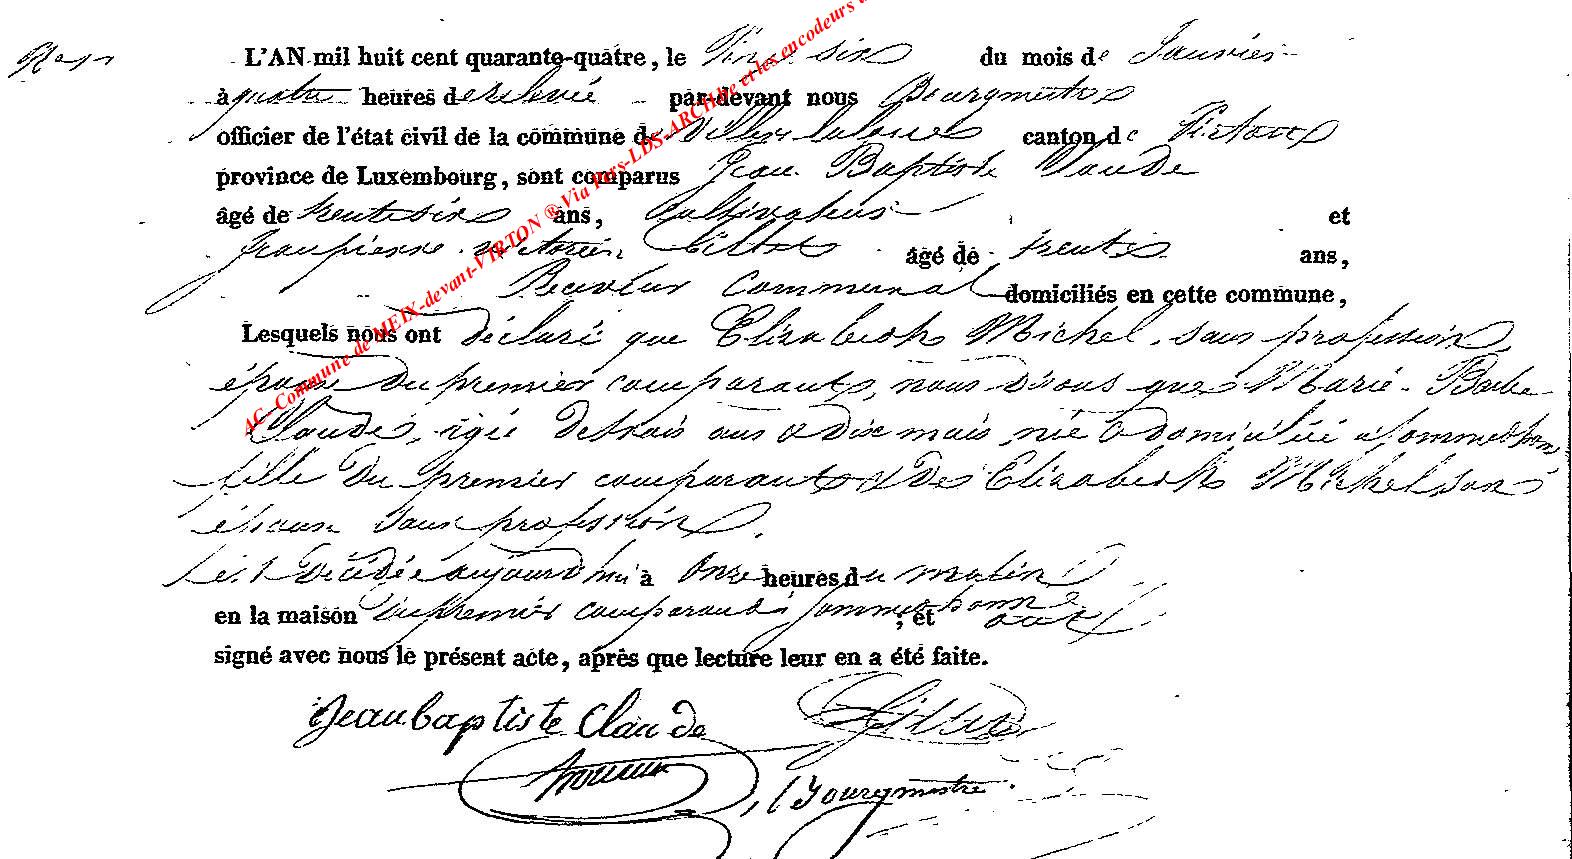 L'AN mil huit cent quarante-quatre, le Vingt six du mois de Janvier
à quatre heures de relevée par-devant nous Bourgmestre
officier de l'état civil de la commune de Villers la loue canton de Virton
province de Luxembourg, sont comparus Jean Baptiste Claude
âgé de trente six ans, Cultivateur et
Jean pierre victorien âgé de trente ans,
Receveur Communal domiciliés en cette commune,
Lesquels nous ont déclaré que Elizabeth Michel, sans profession,
épouse du premier comparant, nous disons que Marie Barbe
Claude, agée de trois ans & dix mois, née & domiciliée a Sommethonne,
fille du premier comparant & de Elizabeth Michel son
épouse sans profession.
est décédée aujourd'hui à Onze heures du matin
en la maison du premier comparant à Sommethonne, et ont
signé avec nous le présent acte, après que lecture leur en a été faite.
Jean baptiste Claude
Bourgmestre.
AC. Commune de MEIX-devant-VIRTON ® Via Vers-LDS-ARCH.be et les encodeurs